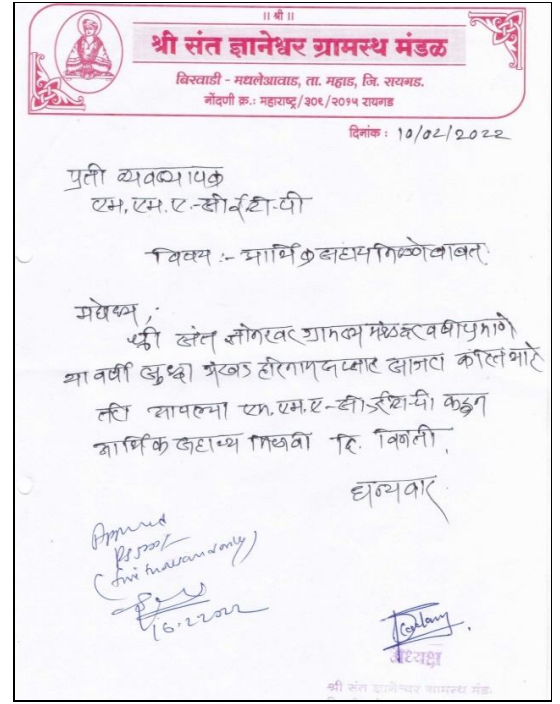 ॥ श्री ॥
श्री संत ज्ञानेश्वर ग्रामस्थ मंडळ
बिरवाडी - मधलेआवाड, ता. महाड, जि. रायगड.
नोंदणी क्र.: महाराष्ट्र/३०९/२०१५ रायगड
दिनांक : 10/02/2022
प्रती व्यवस्थापक
एम.एम.ए.-सीईटी-पी
विषय :- आर्थिक सहाय्य मिळणेबाबत.
महोदय,
श्री संत ज्ञानेश्वर ग्रामस्थ मंडळ दरवर्षी प्रमाणे
या वर्षी सुध्दा अखंड हरिनाम सप्ताह साजरा करित आहे
तरी आपल्या एम.एम.ए-सीईटी-पी कडून
आर्थिक सहाय्य मिळावी हि. विनंती.
धन्यवाद.
Approved
Rs 5000/-
(five thousand only)
16.2.2022
अध्यक्ष
श्री संत ज्ञानेश्वर ग्रामस्थ मंडळ